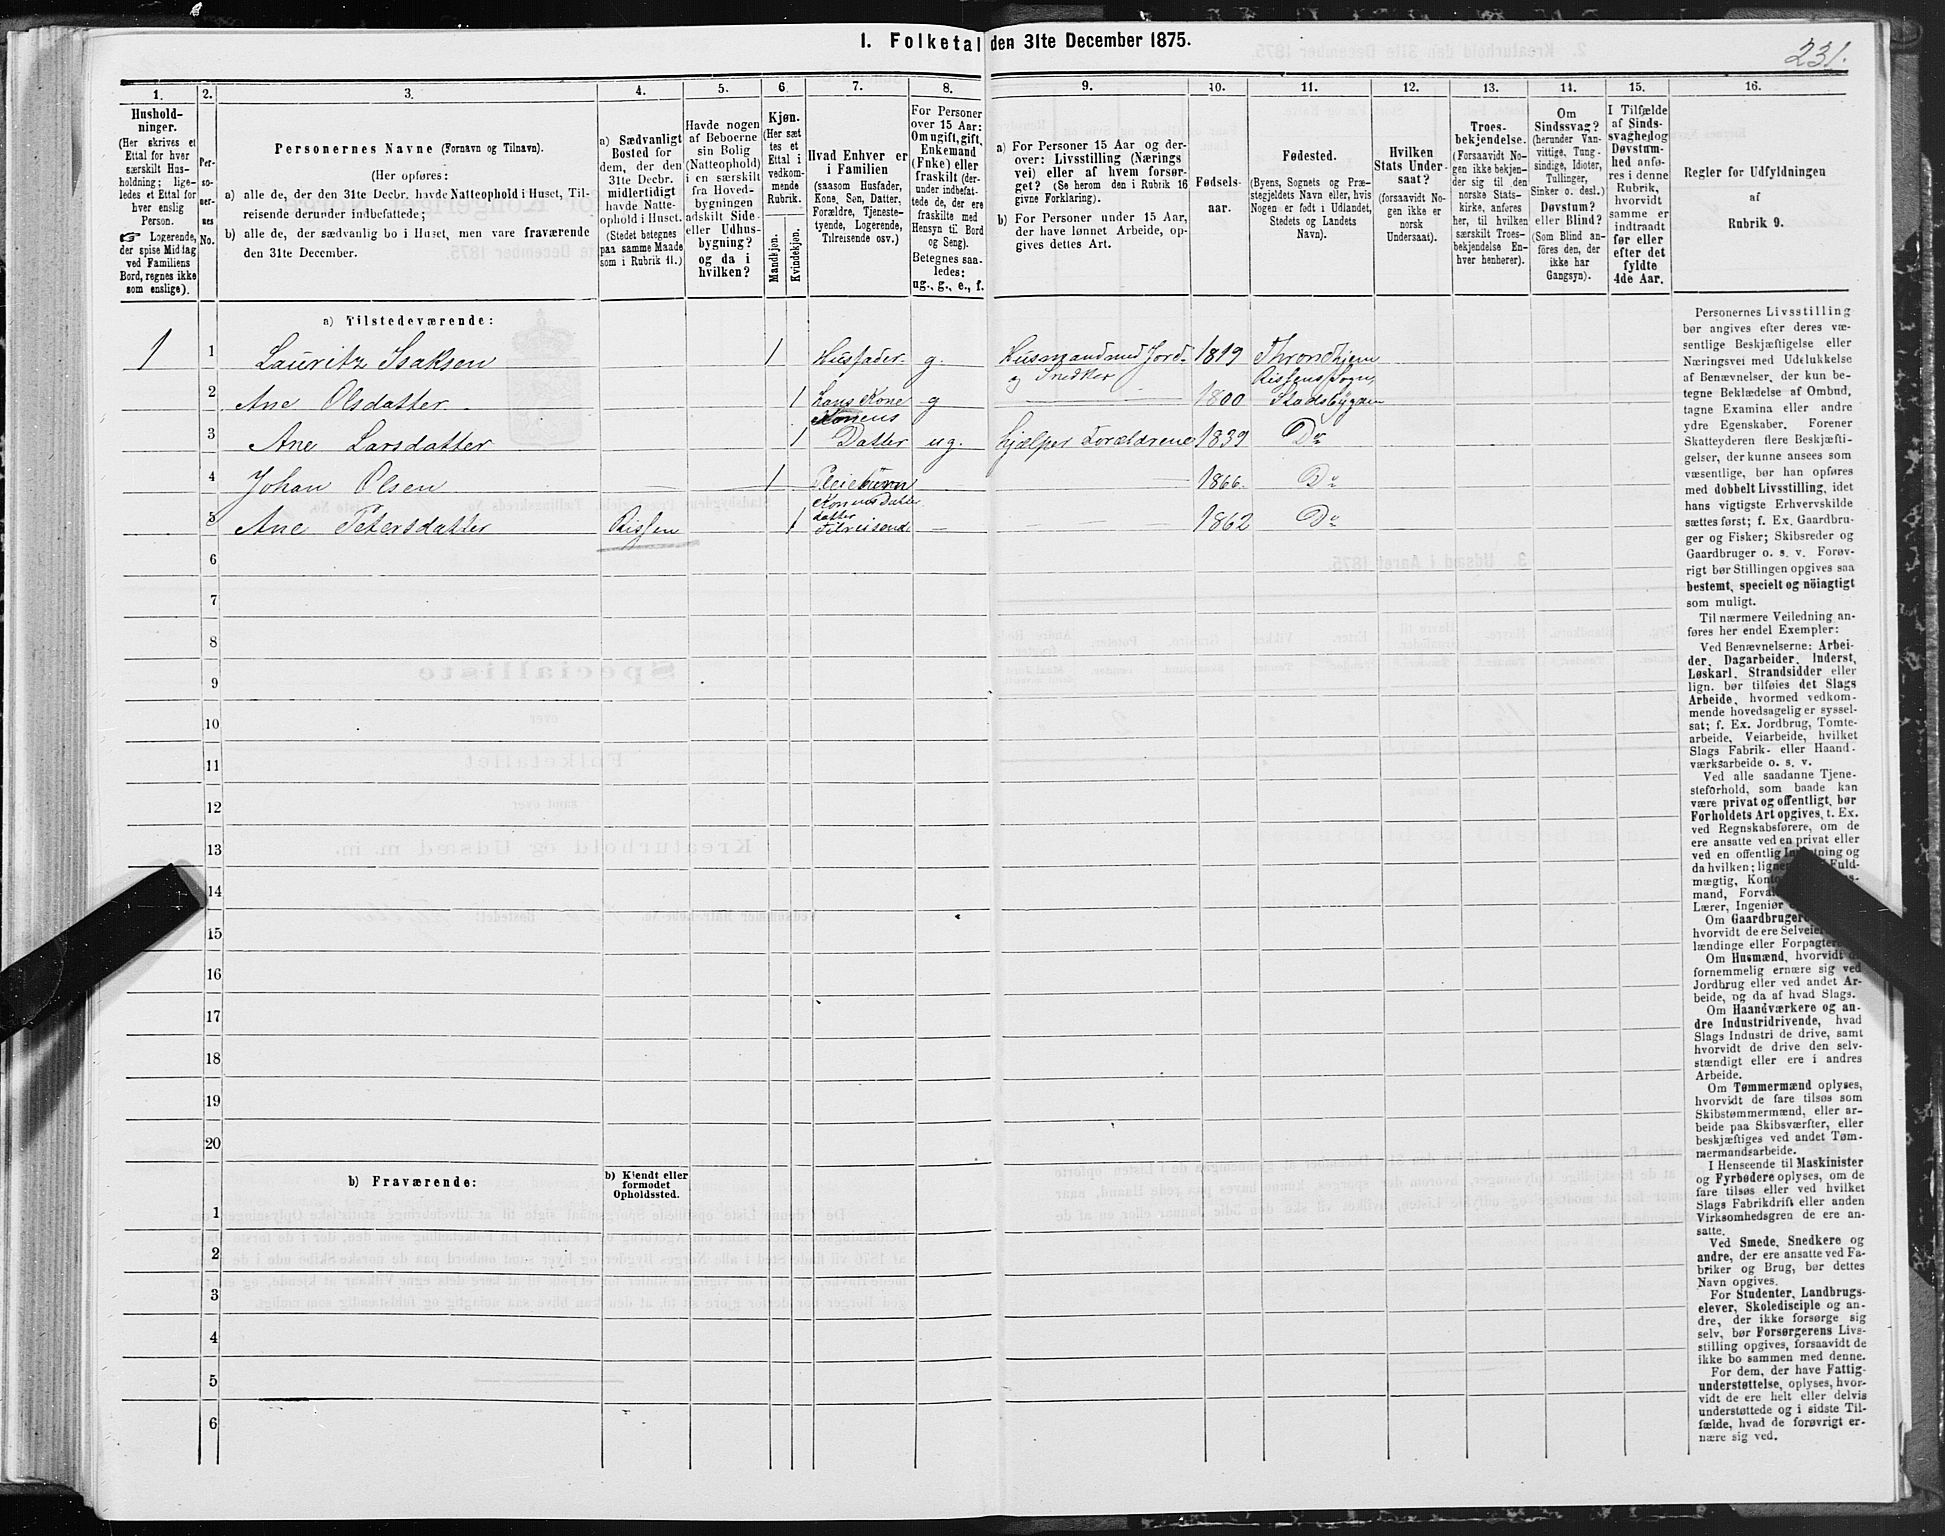 1. Folketal den 31te December 1875.
231.
1.
2.
3.
4.
5.
6.
7.
8.
9.
10.
11.
12.
13.
14.
15.
16.
Hushold-
ninger.
(Her skrives et
Ettal for hver
særskilt Hus-
holdning; lige-
ledes et Ettal for
hver enslig
Person.
☞ Logerende,
der spise Middag
ved Familiens
Bord, regnes ikke
som enslige).
Per-
so-
ner-
nes
No.
Personernes Navne (Fornavn og Tilnavn).
(Her opføres:
a) alle de, der den 31te Decbr. havde Natteophold i Huset, Til-
reisende derunder indbefattede;
b) alle de, der sædvanlig bo i Huset, men vare fraværende
den 31te December.
a) Sædvanligt
Bosted for
dem, der den
31te Decbr.
midlertidigt
havde Natte-
ophold i Huset.
(Stedet betegnes
paa samme Maade
som i Rubrik 11.)
Havde nogen
af Beboerne
sin Bolig
(Natteophold)
i en særskilt
fra Hoved-
bygningen
adskilt Side-
eller Udhus-
bygning?
og da i
hvilken?
Kjøn.
(Her sæt
tes et
Ettal i
vedkom-
mende
Rubrik.
Mandkjøn.
Kvindekjøn.
Hvad Enhver er
i Familien
(saasom Husfader,
Kone, Søn, Datter,
Forældre, Tjeneste-
tyende, Logerende,
Tilreisende osv.)
For Personer
over 15 Aar:
Om ugift, gift,
Enkemand
(Enke) eller
fraskilt (der-
under indbefat-
tede de, der ere
fraskilte med
Hensyn til Bord
og Seng).
Betegnes saa-
ledes:
ug., g., e., f.
a) For Personer 15 Aar og der-
over: Livsstilling (Nærings
vei) eller af hvem forsør-
get? (Se herom den i Rubrik 16
givne Forklaring).
b) For Personer under 15 Aar,
der have lønnet Arbeide, op-
gives dettes Art.
Fødsels-
aar.
Fødested.
(Byens, Sognets og Præ-
stegjeldets Navn eller, hvis
Nogen er født i Udlandet,
Stedets og Landets
Navn).
Hvilken
Stats Under-
saat?
(forsaavidt No-
gen ikke er
norsk
Undersaat).
Troes-
bekjendelse.
(Forsaavidt No-
gen ikke bekjen-
der sig til den
norske Stats-
kirke, anføres
her, til hvilken
særskilt Troes-
bekjendelse En-
hver henhører).
Om
Sindssvag?
(herunder Van-
vittige, Tung-
sindige, Idioter,
Tullinger,
Sinker o. desl.)
Døvstum?
eller Blind?
(Som Blind an-
føres den, der
ikke har
Gangsyn).
I Tilfælde
af Sinds-
svaghed og
Døvstum-
hed anfø-
res i denne
Rubrik,
hvorvidt
samme er
indtraadt
før eller
efter det
fyldte
4de Aar.
Regler for Udfyldningen
af
Rubrik 9.
a) Tilstedeværende:
1 1 Lauritz Isaksen 1 Husfader g. Husmand med Jord 1819 Throndhjem
og Snedker
2 Ane Olsdatter 1 hans Kone g 1800 Rissens Sogn, Stadsbygden
3 Ane Larsdatter 1 Konens Datter ug. hjælper Forældrene 1839 Do
4 Johan Olsen 1 Pleiebarn 1866. Do
5 Ane Petersdatter Rissen 1 Konens Datter datter Tilreisend 1862 Do
6
7
8
9
10
11
12
13
14
15
16
17
18
19
20
b) Fraværende:
b) Kjendt eller
formodet
Opholdssted.
1
2
3
4
5
6
Personernes Livsstilling
bør angives efter deres væ-
sentlige Beskjæftigelse eller
Næringsvei med Udelukkelse
af Benævnelser, der kun be-
tegne Beklædelse af Ombud,
tagne Examina eller andre
ydre Egenskaber. Forener
Skatteyderen flere Beskjæfti-
gelser, der kunne ansees som
væsentlige, bør han opføres
med dobbelt Livsstilling, idet
hans vigtigste Erhvervskilde
sættes først; f. Ex. Gaardbru-
ger og Fisker; Skibsreder og
Gaardbruger o. s. v. Forøv-
rigt bør Stillingen opgives saa
bestemt, specielt og nöiagtigt
som muligt.
Til nærmere Veiledning an-
føres her endel Exempler:
Ved Benævnelserne: Arbei-
der, Dagarbeider, Inderst,
Løskarl, Strandsidder eller
lign. bør tilføies det Slags
Arbeide, hvormed vedkom-
mende hovedsagelig er syssel-
sat; f. Ex. Jordbrug, Tomte-
arbeide, Veiarbeide, hvilket
Slags Fabrik- eller Haand-
værksarbeide o. s. v.
Ved alle saadanne Tjene-
steforhold, som baade kan
være privat og offentligt, bør
Forholdets Art opgives, t. Ex.
ved Regnskabsførere, om de
ere ansatte ved en privat eller
ved en offentlig Indretning og
da hvilken;
mægtig,
mand,
Lærer, Ingeniør
Om Gaardbrugere
hvorvidt de ere
lændinge eller
Om Husmænd, hvorvidt de
fornemmelig ernære sig ved
Jordbrug eller ved andet Ar-
beide, og da af hvad Slags.
Om Haandværkere og an-
dre Industridrivende, hvad
Slags Industri de drive, samt
hvorvidt de drive den selv-
stændigt eller ere i andres
Arbeide.
Om Tømmermænd oplyses,
hvorvidt de fare tilsøs som
Skibstømmermænd, eller ar-
beide paa Skibsværfter, eller
beskjæftiges ved andet Tøm-
mermandsarbeide.
I Henseende til Maskinister
og Fyrbødere oplyses, om de
fare tilsøs eller ved hvilket
Slags Fabrikdrift eller anden
Virksomhedsgren de ere an-
satte.
Ved Smede, Snedkere og
andre, der ere ansatte ved Fa-
briker og Brug, bør dettes
Navn opgives.
For Studenter, Landbrugs-
elever, Skoledisciple og an-
dre, der ikke forsørge sig
selv, bør Forsørgerens Livs-
stilling opgives, forsaavidt de
ikke bo sammen med denne.
For dem, der have Fattig-
understøttelse, oplyses, hvor-
vidt de ere helt eller delvis
understøttede og i sidste Til-
fælde, hvad de forøvrigt er-
nære sig ved.